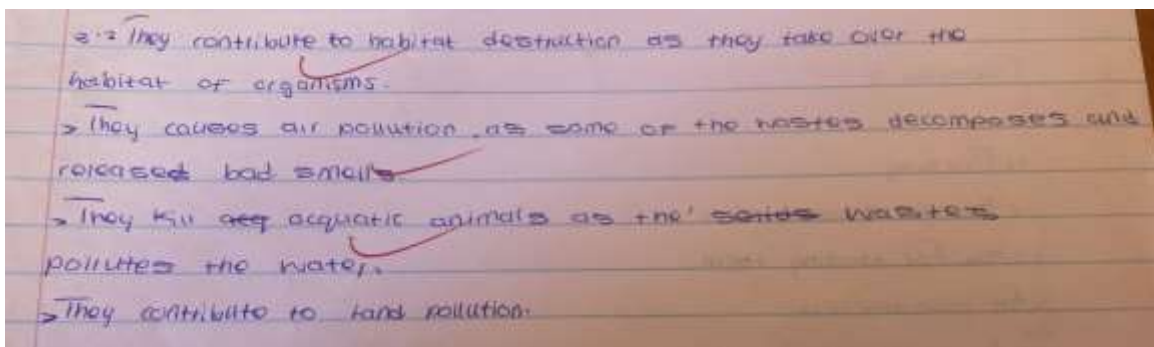 2.2 They contribute to habitat destruction as they take over the
habitat of organisms.
> They causes air pollution, as some of the wastes decomposes and
released bad smells.
> They kill acquatic animals as the wastes
pollutes the water.
> They contribute to land pollution.